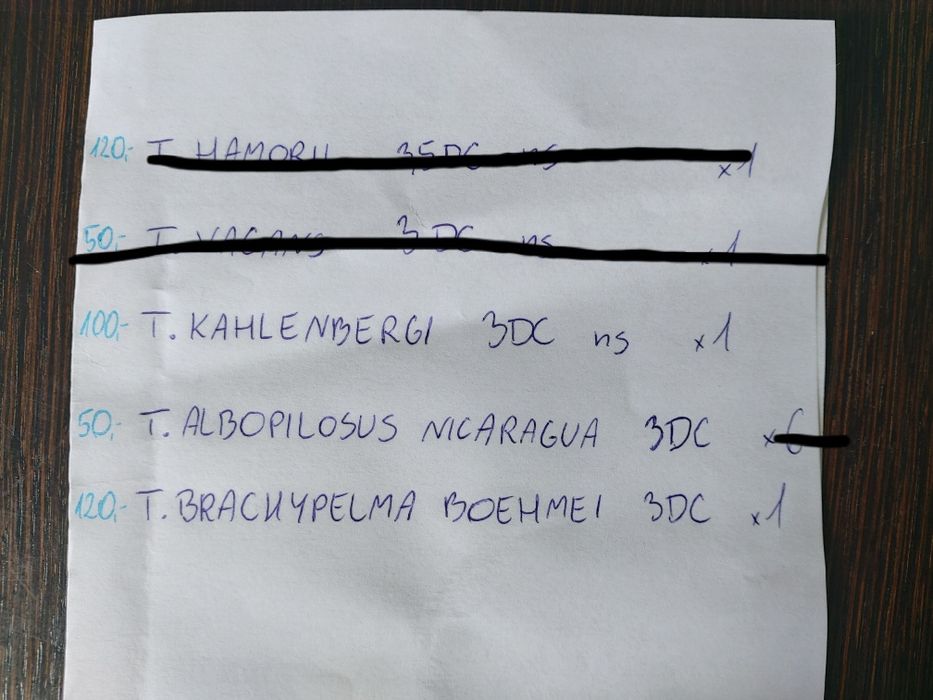 120,- T. HAMORII 3,5DC ns x1
50,- T. VAGANS 3 DC ns x1
100,- T. KAHLENBERGI 3DC ns x1
50,- T. ALBOPILOSUS NICARAGUA 3DC x6
120,- T. BRACHYPELMA BOEHMEI 3DC x1